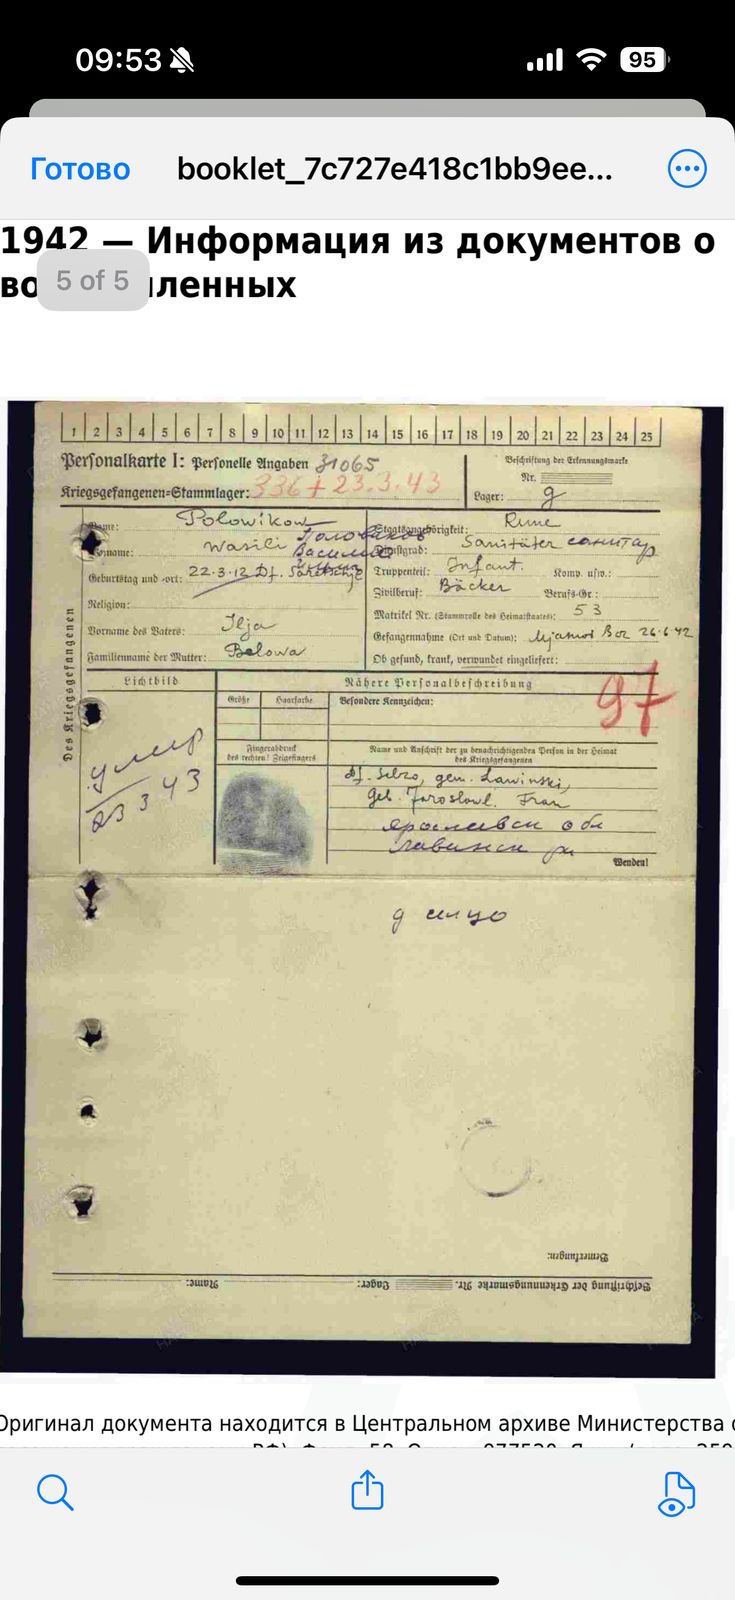 09:53
95
Готово
booklet_7c727e418c1bb9ee...
1942 — Информация из документов о
5 of 5
1 2 3 4 5 6 7 8 9 10 11 12 13 14 15 16 17 18 19 20 21 22 23 24 25
Personalkarte I: Personelle Angaben 31065
Kriegsgefangenen=Stammlager: 336 † 23.3.43
Beschriftung der Erkennungsmarke
Nr.
Lager:
Des Kriegsgefangenen
Name: Polowikow Половиков
Vorname: Wasili Василий
Geburtstag und =ort: 22.3.12 Df.
Religion:
Vorname des Vaters: Ilja
Familienname der Mutter: Belowa
Staatsangehörigkeit: Russe
Dienstgrad: Sanitäter санитар
Truppenteil: Infant. Komp. usw.:
Zivilberuf: Bäcker Berufs-Gr.:
Matrikel Nr. (Stammrolle des Heimatstaates): 53
Gefangennahme (Ort und Datum): Mjasnoi Bor 26.6.42
Ob gesund, krank, verwundet eingeliefert:
Lichtbild
Nähere Personalbeschreibung
Größe
Haarfarbe
Besondere Kennzeichen:
97
Fingerabdruck
des rechten! Zeigefingers
Name und Anschrift der zu benachrichtigenden Person in der Heimat
des Kriegsgefangenen
умер
23 3 43
Df. gem. Lawinski,
Geb. Jaroslowl. Frau
ярославск обл
Wenden!
Bemerkungen:
Beschriftung der Erkennungsmarke Nr. Lager: Name:
Оригинал документа находится в Центральном архиве Министерства